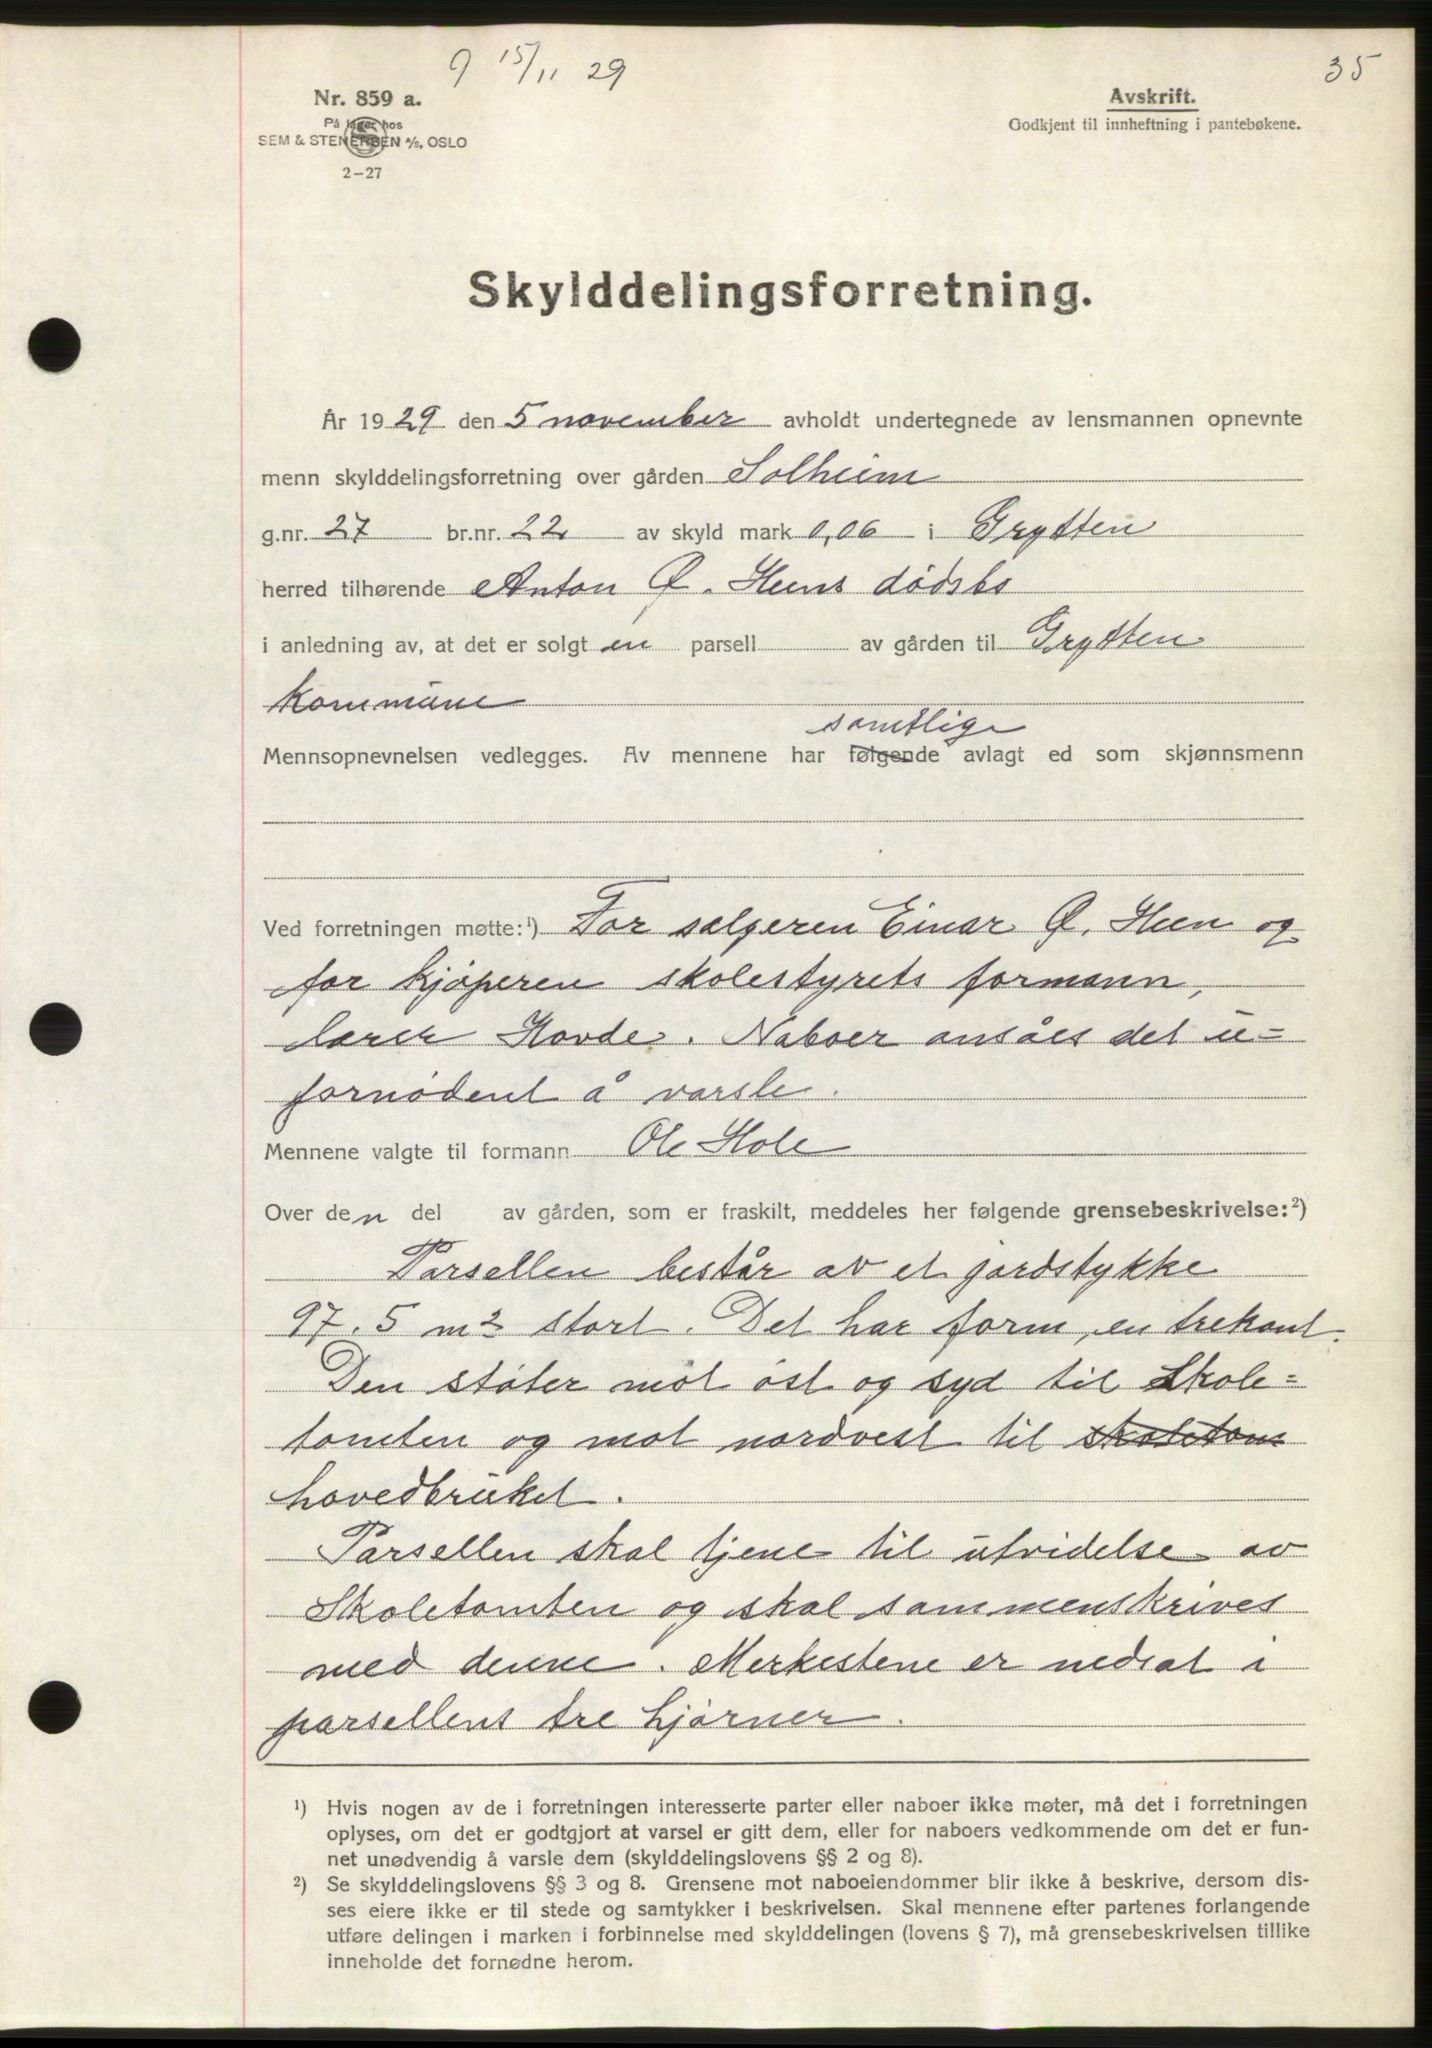 9 15/11 29
35
Nr. 859 a.
På lager hos
SEM & STENERSEN A/S, OSLO
2-27
Avskrift.
Godkjent til innheftning i pantebøkene.
Skylddelingsforretning.
År 1929 den 5 november avholdt undertegnede av lensmannen opnevnte
menn skylddelingsforretning over gården Solheim
g.nr. 27 br.nr. 22 av skyld mark 0,06 i Grytten
herred tilhørende Anton Ø. Heens dødsbo
i anledning av, at det er solgt en parsell av gården til Grytten
kommune
samtlige
Mennsopnevnelsen vedlegges. Av mennene har følgende avlagt ed som skjønnsmenn
Ved forretningen møtte:¹) For selgeren Einar Ø. Heen og
for kjøperen skolestyrets formann,
lærer Hovde. Naboer ansåes det u=
fornødent å varsle.
Mennene valgte til formann Ole Hole
Over den del av gården, som er fraskilt, meddeles her følgende grensebeskrivelse:²)
Parsellen består av et jordstykke
97.5 m2 stort. Det har form en trekant.
Den støter mot øst og syd til Skole=
tomten og mot nordvest til skoletom
hovedbruket.
Parsellen skal tjene til utvidelse av
Skoletomten og skal sammenskrives
med denne. Merkestene er nedsat i
parsellens tre hjørner.
¹) Hvis nogen av de i forretningen interesserte parter eller naboer ikke møter, må det i forretningen
oplyses, om det er godtgjort at varsel er gitt dem, eller for naboers vedkommende om det er fun-
net unødvendig å varsle dem (skylddelingslovens §§ 2 og 8).
²) Se skylddelingslovens §§ 3 og 8. Grensene mot naboeiendommer blir ikke å beskrive, dersom dis-
ses eiere ikke er til stede og samtykker i beskrivelsen. Skal mennene efter partenes forlangende
utføre delingen i marken i forbinnelse med skylddelingen (lovens § 7), må grensebeskrivelsen tillike
inneholde det fornødne herom.